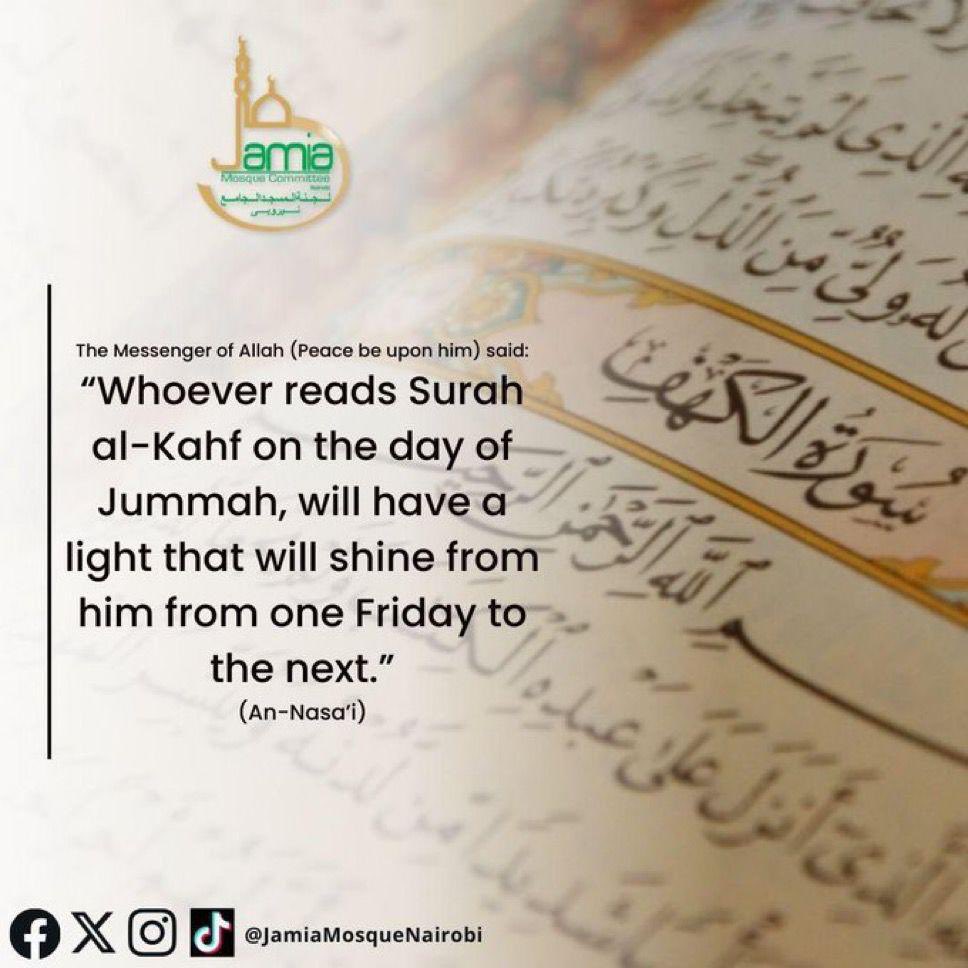 Jamia
Mosque Committee
Nairobi
لجنة المسجد الجامع
نيروبي
The Messenger of Allah (Peace be upon him) said:
“Whoever reads Surah
al-Kahf on the day of
Jummah, will have a
light that will shine from
him from one Friday to
the next.”
(An-Nasa’i)
لَّهُۥ وَلِىٌّ مِّنَ ٱلذُّلِّ وَكَبِّرْهُ
سُورَةُ الكَهْفِ
ٱللَّهِ ٱلرَّحْمَٰنِ ٱلرَّحِيمِ
ٱلَّذِىٓ أَنزَلَ عَلَىٰ عَبْدِهِ ٱلْكِتَٰبَ
@JamiaMosqueNairobi